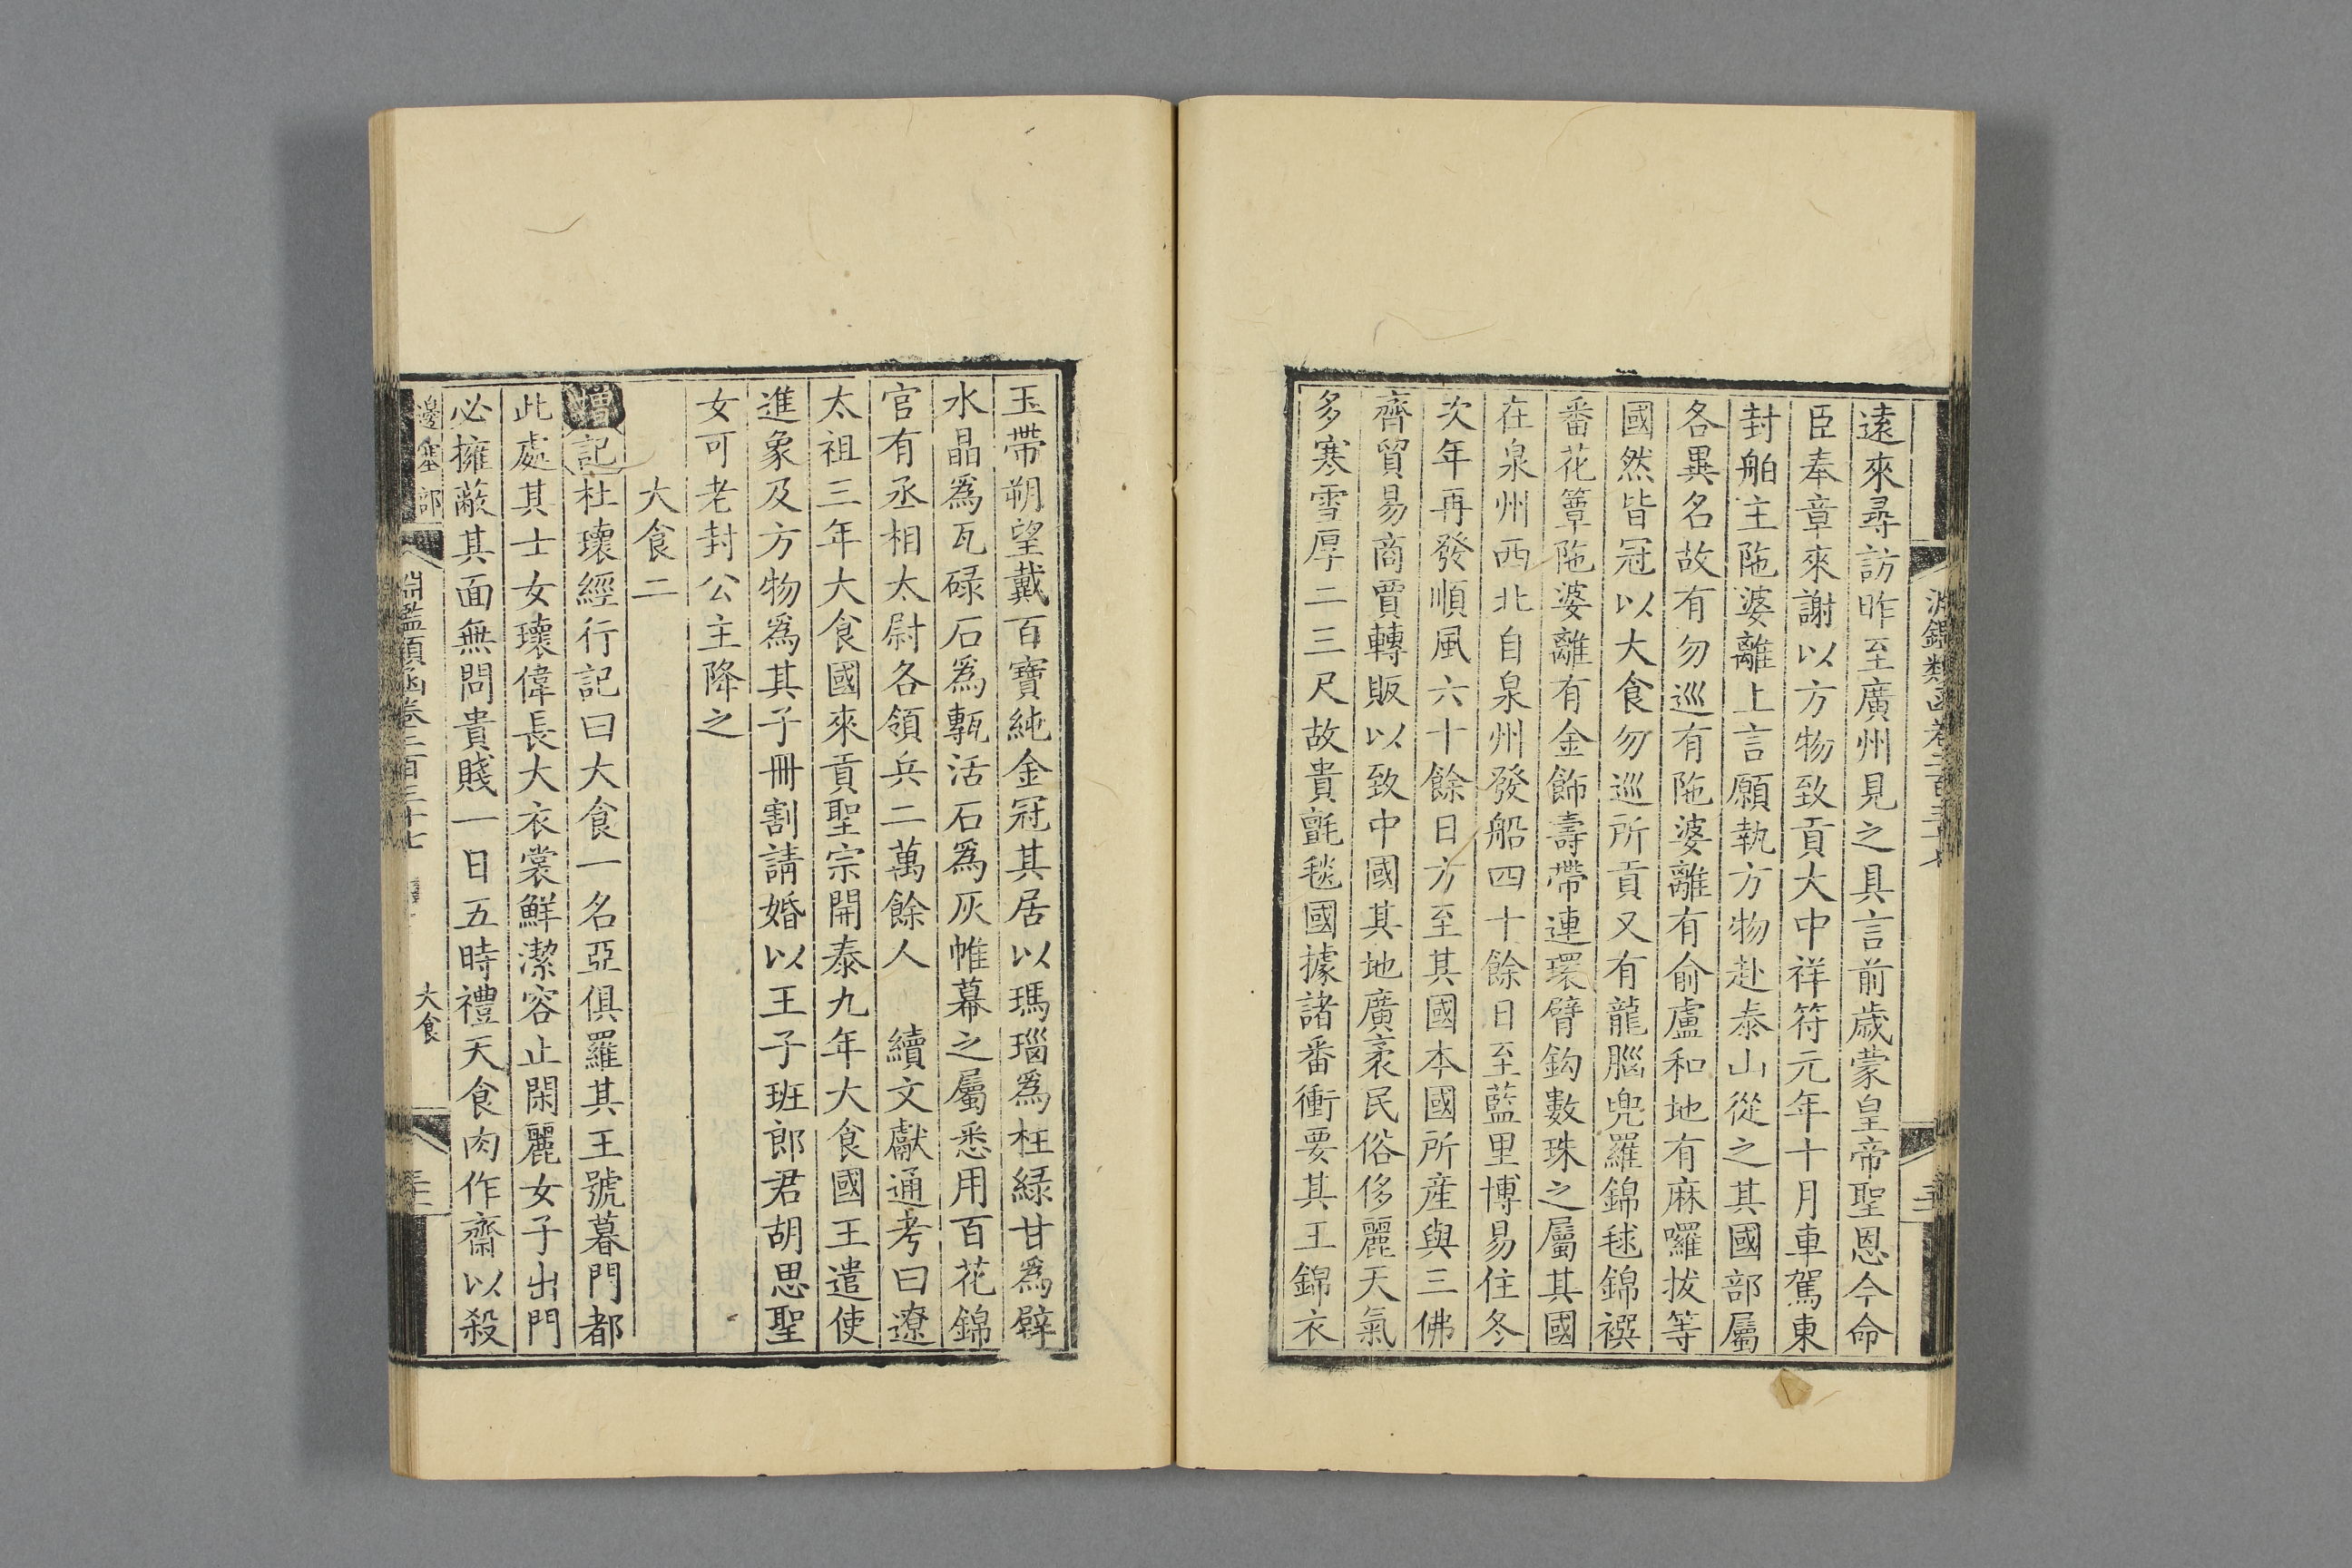 遠來尋訪昨至廣州見之具言前歲蒙皇帝聖恩今命
臣奉章來謝以方物致貢大中祥符元年十月車駕東
封舶主陁婆離上言願執方物赴泰山從之其國部屬
各異名故有勿巡有陁婆離有俞盧和地有麻囉拔等
國然皆冠以大食勿巡所貢又有龍腦兜羅錦毬錦襈
番花簟陁婆離有金飾壽帶連環臂鈎數珠之屬其國
在泉州西北自泉州發船四十餘日至藍里博易住冬
次年再發順風六十餘日方至其國本國所産與三佛
齊貿易商賈轉販以致中國其地廣袤民俗侈麗天氣
多寒雪厚二三尺故貴氊毯國據諸番衝要其王錦衣
玉帶朔望戴百寶純金冠其居以瑪瑙爲柱緑甘爲壁
水晶爲瓦碌石爲甎活石爲灰帷幕之屬悉用百花錦
官有丞相太尉各領兵二萬餘人　續文獻通考曰遼
太祖三年大食國來貢聖宗開泰九年大食國王遣使
進象及方物爲其子冊割請婚以王子班郎君胡思聖
女可老封公主降之
大食二
增記杜瓌經行記曰大食一名亞俱羅其王號暮門都
此處其士女瓌偉長大衣裳鮮潔容止閑麗女子出門
必擁蔽其面無問貴賤一日五時禮天食肉作齋以殺
邊塞部　淵鑑類函卷二百三十七　大食